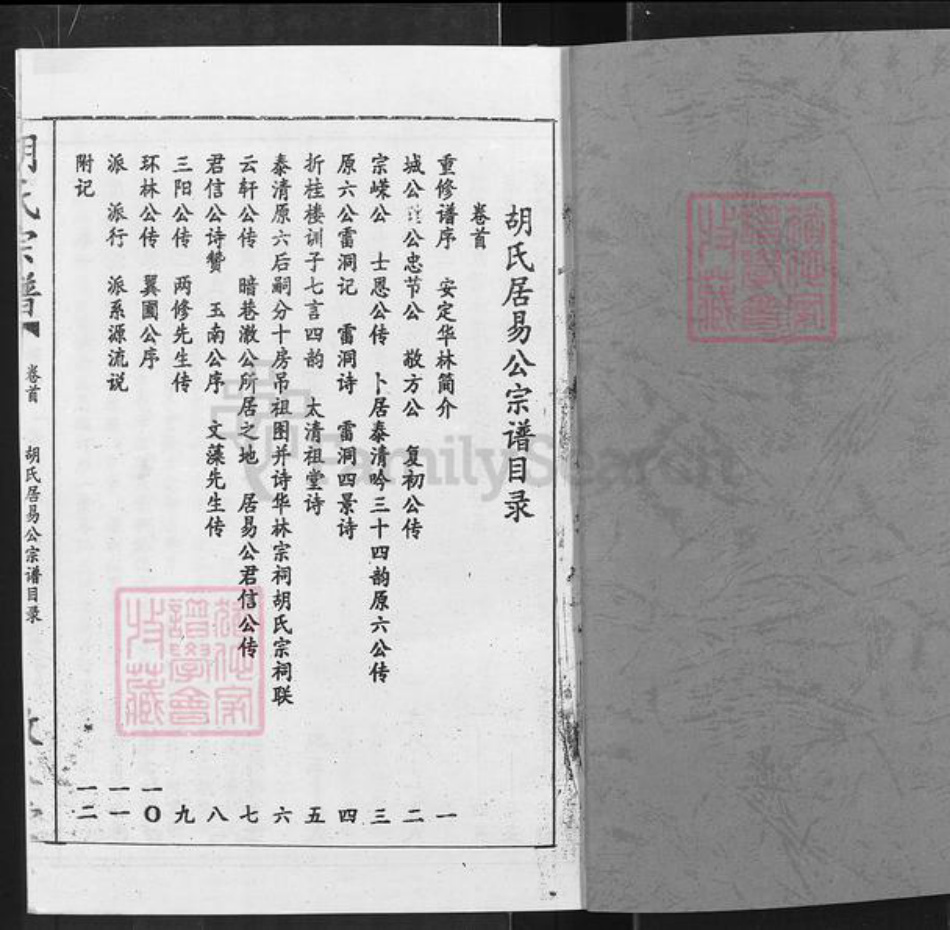 胡氏居易公宗谱目录
卷首
重修谱序 安定华林简介 一
城公 公忠节公 敬方公 复初公传 二
宗嵘公 士恩公传 卜居泰清吟三十四韵原六公传 三
原六公雷洞记 雷洞诗 雷洞四景诗 四
折桂楼训子七言四韵 太清祖堂诗 五
泰清原六后嗣分十房吊祖图并诗华林宗祠胡氏宗祠联 六
云轩公传 暗巷澉公所居之地 居易公君信公传 七
君信公诗赞 玉南公序 文藻先生传 八
三阳公传 两修先生传 九
环林公传 翼圃公序 一〇
派 派行 派系源流说 一一
附记 一二
胡氏宗谱 卷首 胡氏居易公宗谱目录
FamilySearch